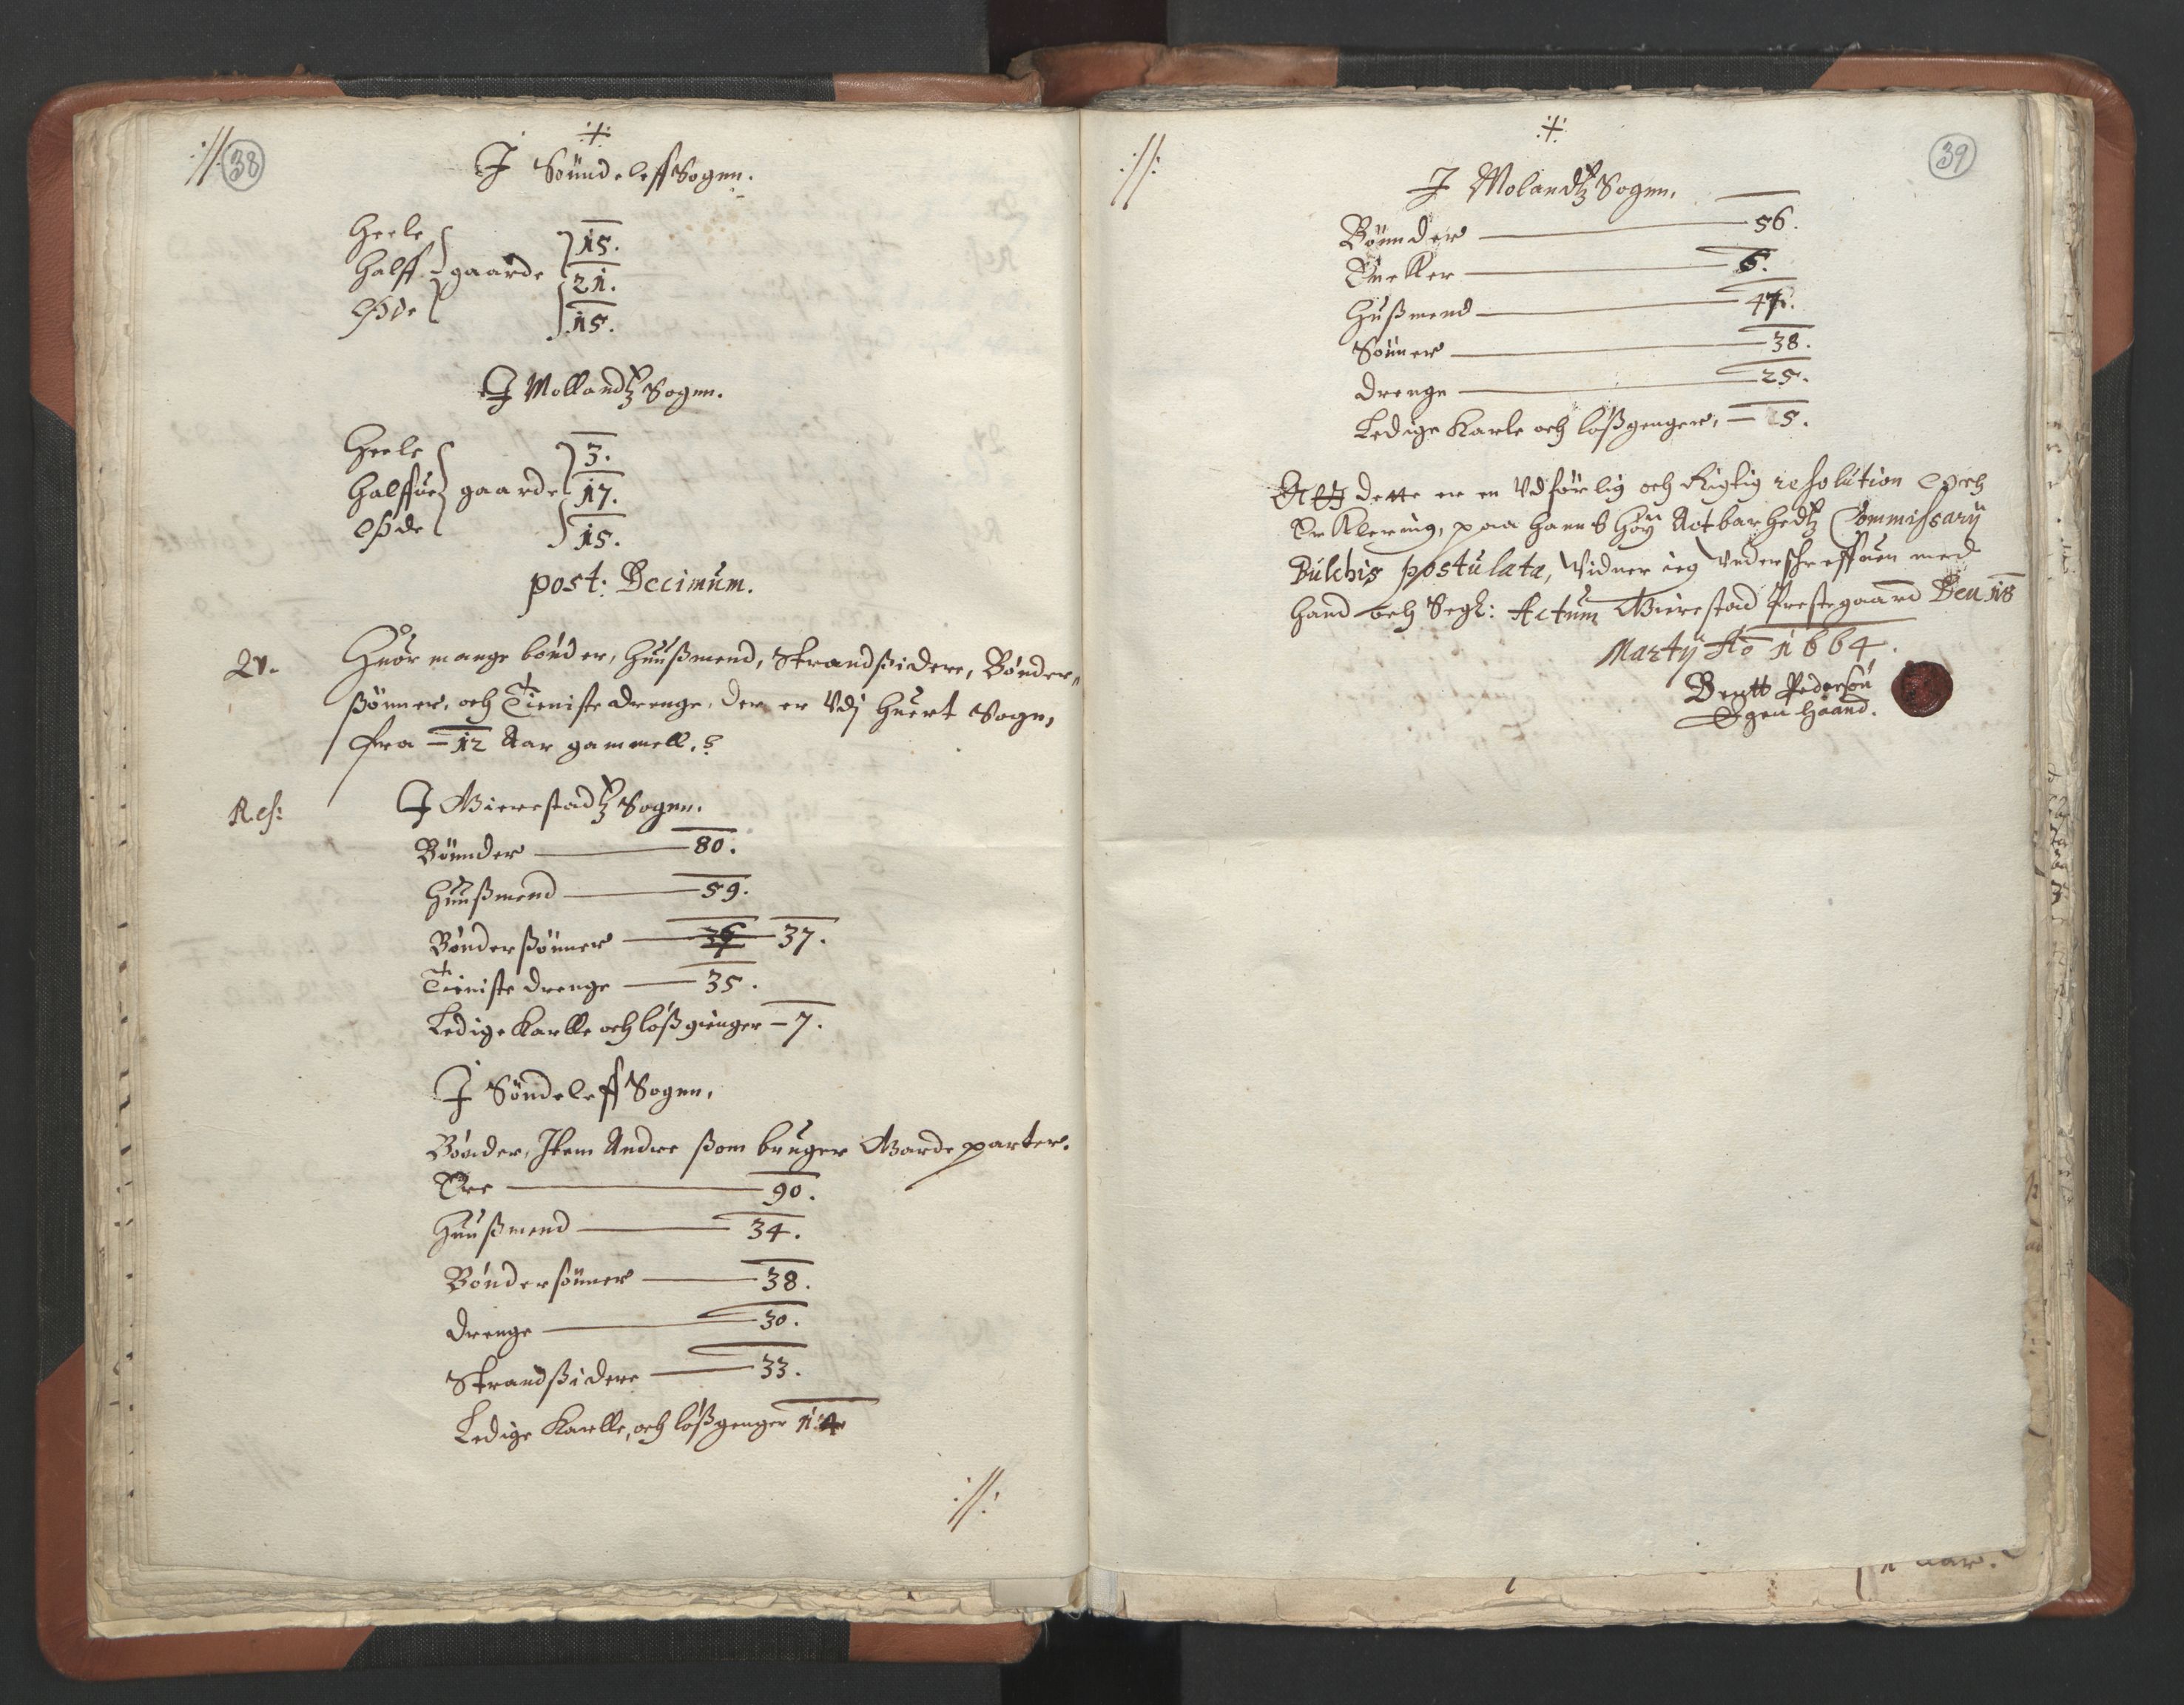 ://: 38
:+:
J Sönndeleff Sogen.
Heele
Halff gaarde
Øde
15.
21.
15.
J Mollandtz Sogen.
Heele
Halffue gaarde
Øde
3.
17.
15.
post: Decimum.
Qv. Huor mange bönder, Huußmend, Strandßidere, Bönder„
ßönner, och Tieniste drenge, der er Vdj Huert Sogn,
fra — 12 Aar gammell.?
Res: J Gierestadtz Sogen.
Bönnder — 80.
Huußmend — 59.
Bönderßönner — 37.
Tieniste drenge — 35.
Ledige Karlle och lößgienger — 7.
J Söndeleff Sogen,
Bönder, Item Andre ßom bruger Gardeparter.
Ere — 90.
Huußmend — 34.
Böndersönner — 38.
drenge — 30.
Strandßidere — 33.
Ledige Karlle, och lößgenger 14
://:
://:
:+:
39
J Molandtz Sogen.
Bönnder — 56.
Encker — 6.
Hußmend — 47.
Sönner — 38.
drenge — 25.
Ledige Karle och lößgenger, — 5.
At dette er en Vdförlig och Rigtig resolution och
Erklering, paa Hanns Höy Actbarhedtz Commissarij
Bülchis postulata, Vidner ieg Vnderschreffuen med
Hand och Segl: Actum Gierestad Prestegaard Den 18
Martij Ao 1664.
Bentt Pedersön
Egen Haand.